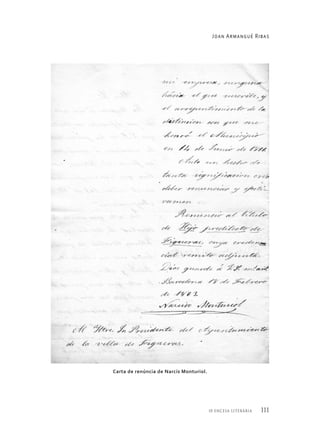 Joan Armangué Ribas
mi empresa, ninguna
hacia el que suscribe, y
el arrepentimiento de la
distincion con que me
honró el Municipio
en 14 de Junio de
Ante un hecho de
tanta significacion creo
deber renunciar y
Renuncio al título
de Hijo predilecto de
Figueras, cuya creden
cial remito adjunta.
Dios guarde á V.S.
Barcelona 18 de Febrero
de
Narciso Monturiol
M. Iltre. Sr. Presidente del Ayuntamiento
de la villa de Figueras.
Carta de renúncia de Narcís Monturiol.
III